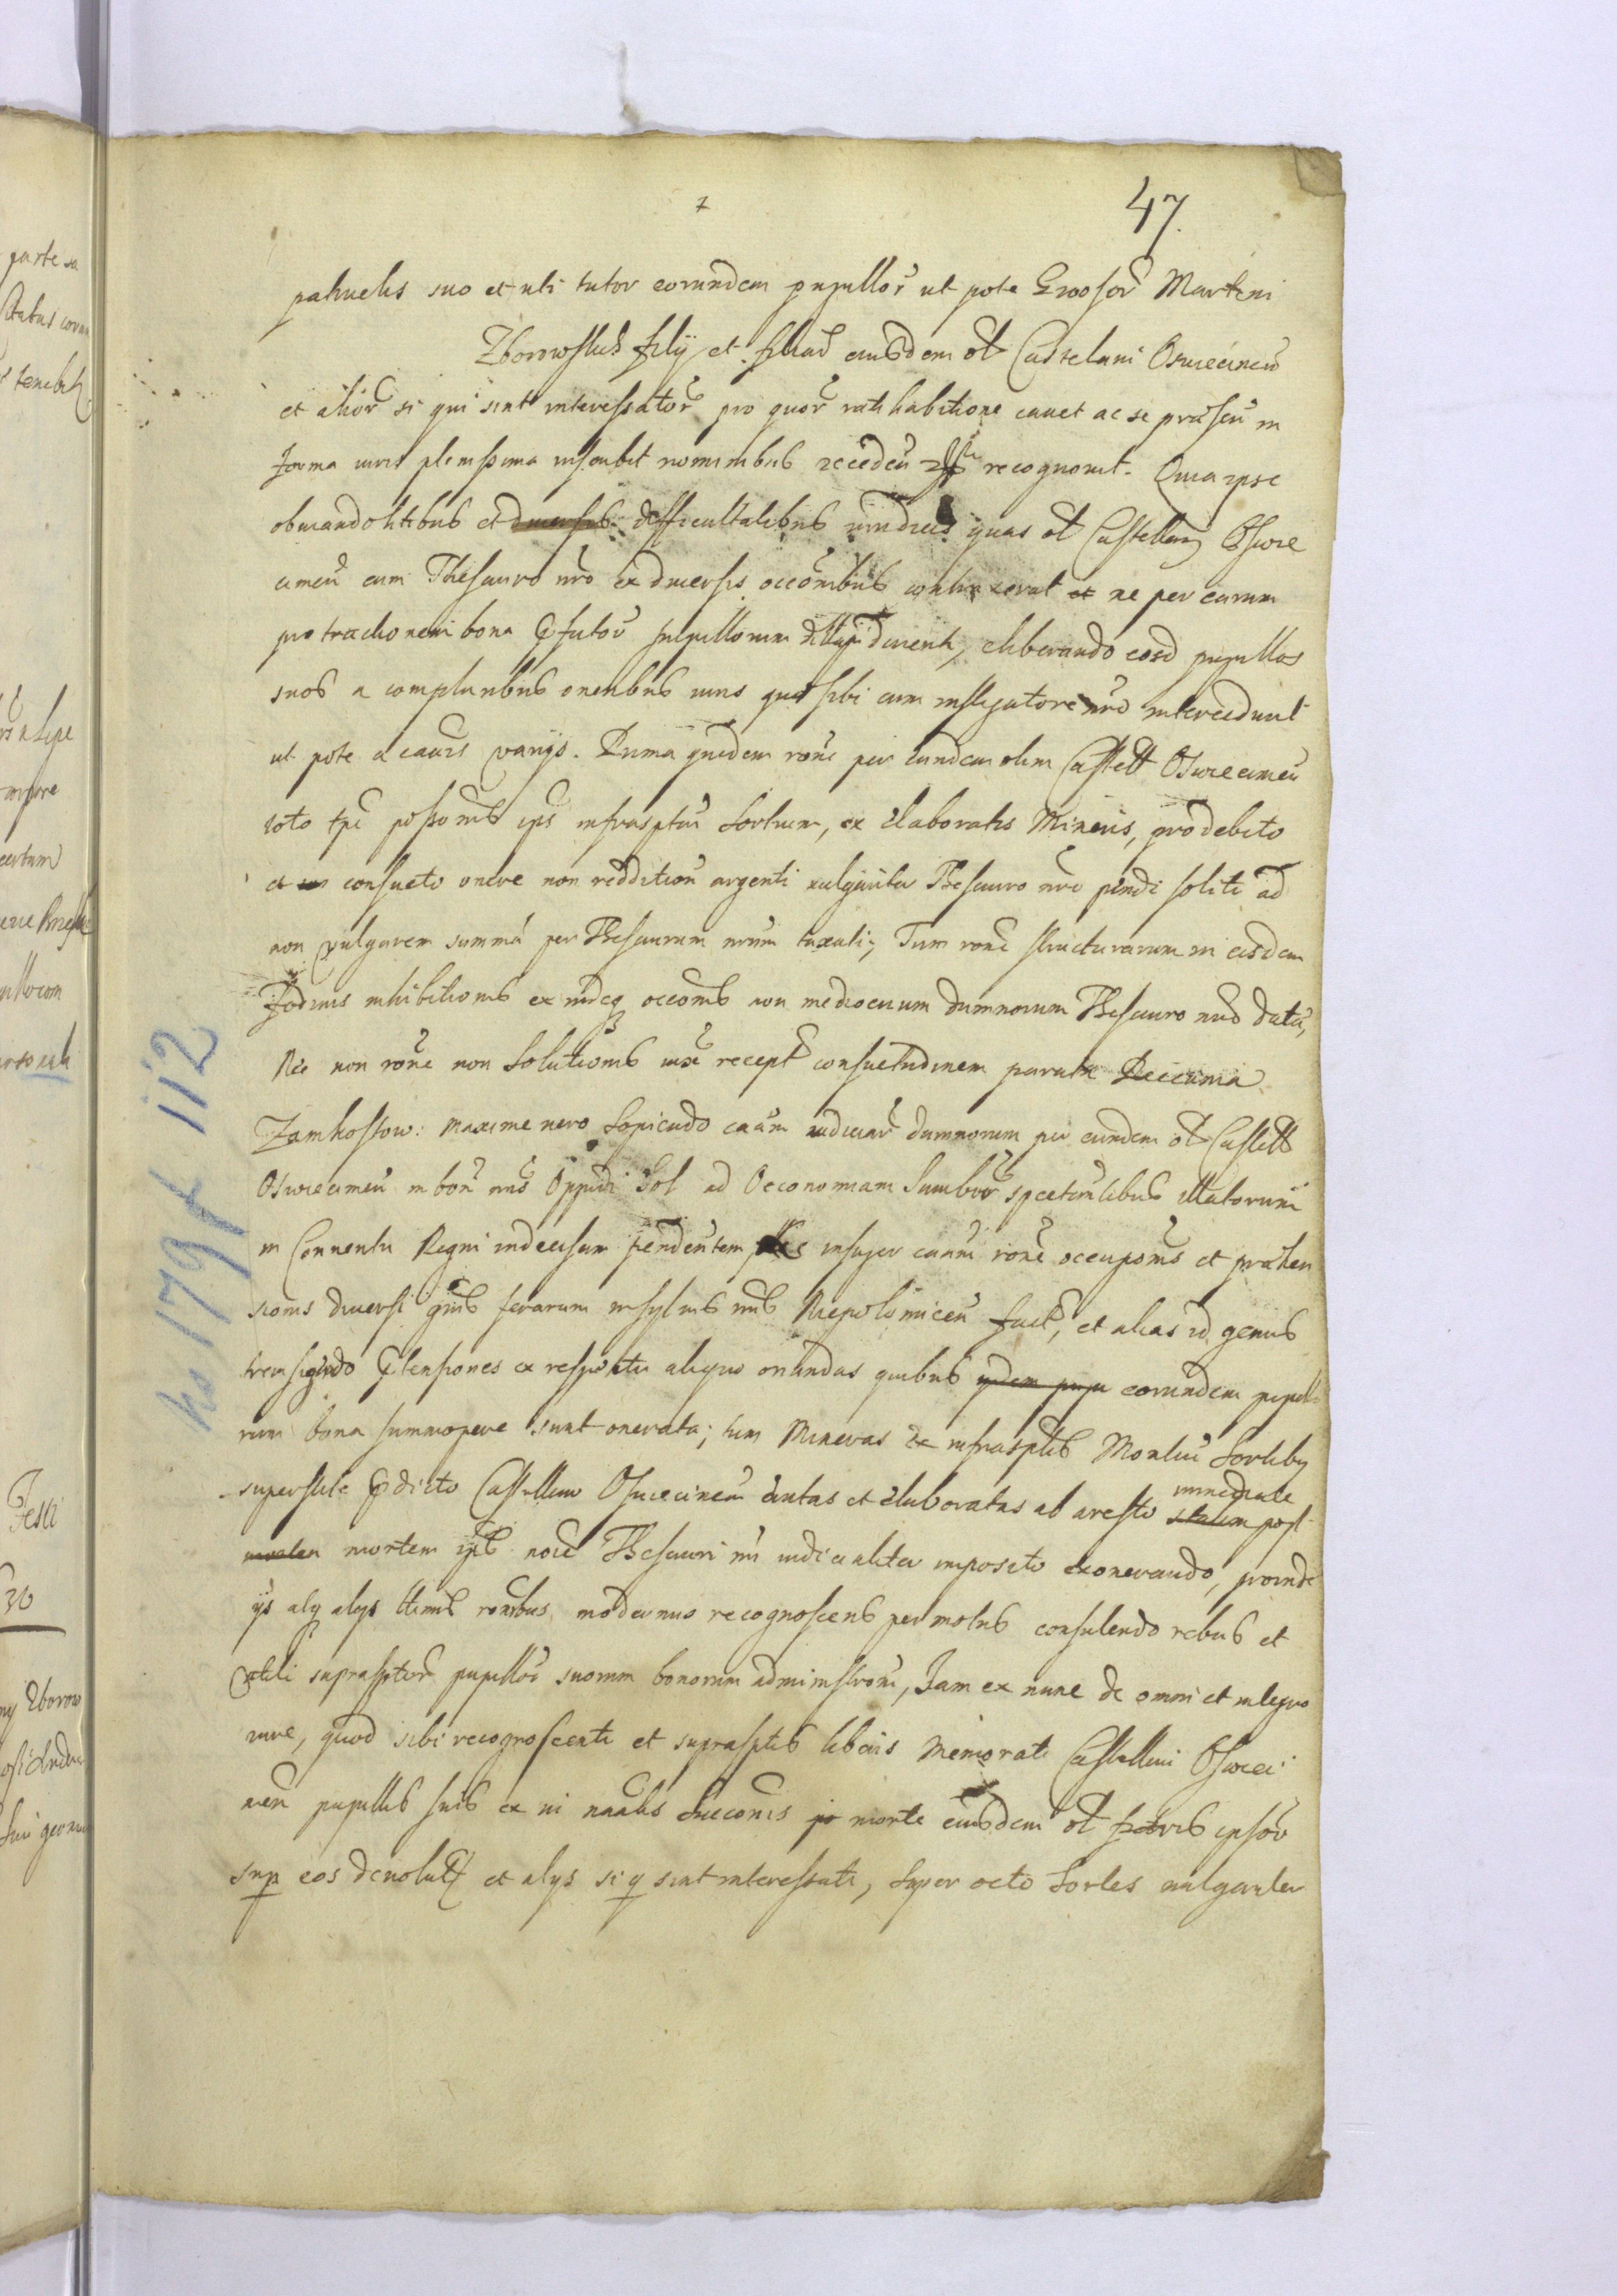 47.
patruelis suo et uti tutor eorundem pupillor̃ ut pote Grosor̃ Martini
Zborowskis filij et filiar̃ eiusdem ol Castelani Oswiecimen̄
et alior̃ si qui sint interessator̃ pro quor̃ ratihabitione cauet ac se præsen̄ in
forma iuris plenissima inscribit nominibus recedeñ recognouit. Quia ipse
obuiando litibus et diuersis difficultatibus iuridicis quas ol Castellanus Oswie
cimeñ cum Thesauro nr̃o ex diuersis occõnibus contraxerat et ne per earum
protractionem bona p̱fator̃ pupillorum dilapidarentr, eliberando eosd pupillos
suos a compluribus oneribus iuris quæ sibi cum instigatore nr̃o intercedunt
ut pote a cauis varijs. Prima quidem rõne per eundem olim Castell Oswiecimeñ
toto tp̃e possonis ips̃ infrasptar̃ sortium, ex elaboratis Mineris, pro debito
et consueto onere non redditioñ argenti vulgariter Thesauro nr̃o pendi soliti ad
non vulgarem summã per Thesaurum nr̃um taxati; Tum rõne structurarum in eisdem
Fodinis inhibitionis ex indeq̨ occõnis non mediocrium damnorum Thesauro nr̃o dator̃,
Nec non rõne non Solutionis iuxᵃ recept consuetudinem paratæ Decimæ
Zamkostow: maxime uero sopiendo caũm iudiciar̃ damnorum per eundem ol Castell
Oswiecimeñ in bon̄ nr̃is Oppidi Sol ad Oeconomiam Sambor̃ spectantibus illatorum
in Conuentu Regni indecisam pendentem insuper caũm rõne occupõnis et præhen
sionis diuersi gñis ferarum in syluis nr̃is Niepolomiceñ fact, et alias id genus
transigendo p̱tensiones ex respectu aliquo oriundas quibus ijdem pupi eorundem pupillo
rum bona summopere sunt onerata; tum Mineras ex infrasptis Montiũ Sortibus
superstite p̱dicto Castellano Oswiecimeñ erutas et elaboratas ab aresto statim immediate post
mortem ips̃ noĩe Thesauri nr̃i iudicialiter imposito exonerando, proinde
ijs alijs alys ltimis rõnibus modernus recognoscens permotus consulendo rebus et
vtili suprasptor̃ pupillor̃ suorum bonorum administrõni, Jam ex nunc de omni et integro
iure, quod sibi recognoscenti et suprasptis liberis memorati Castellani Oswieci
meñ pupillis suis ex ui nãalis succonis morte eiusdem ol patris ipsor̃
sup eos deuolut et alys si q̨ sint interessati, super octo Sortes vulgariter
no 1791 112